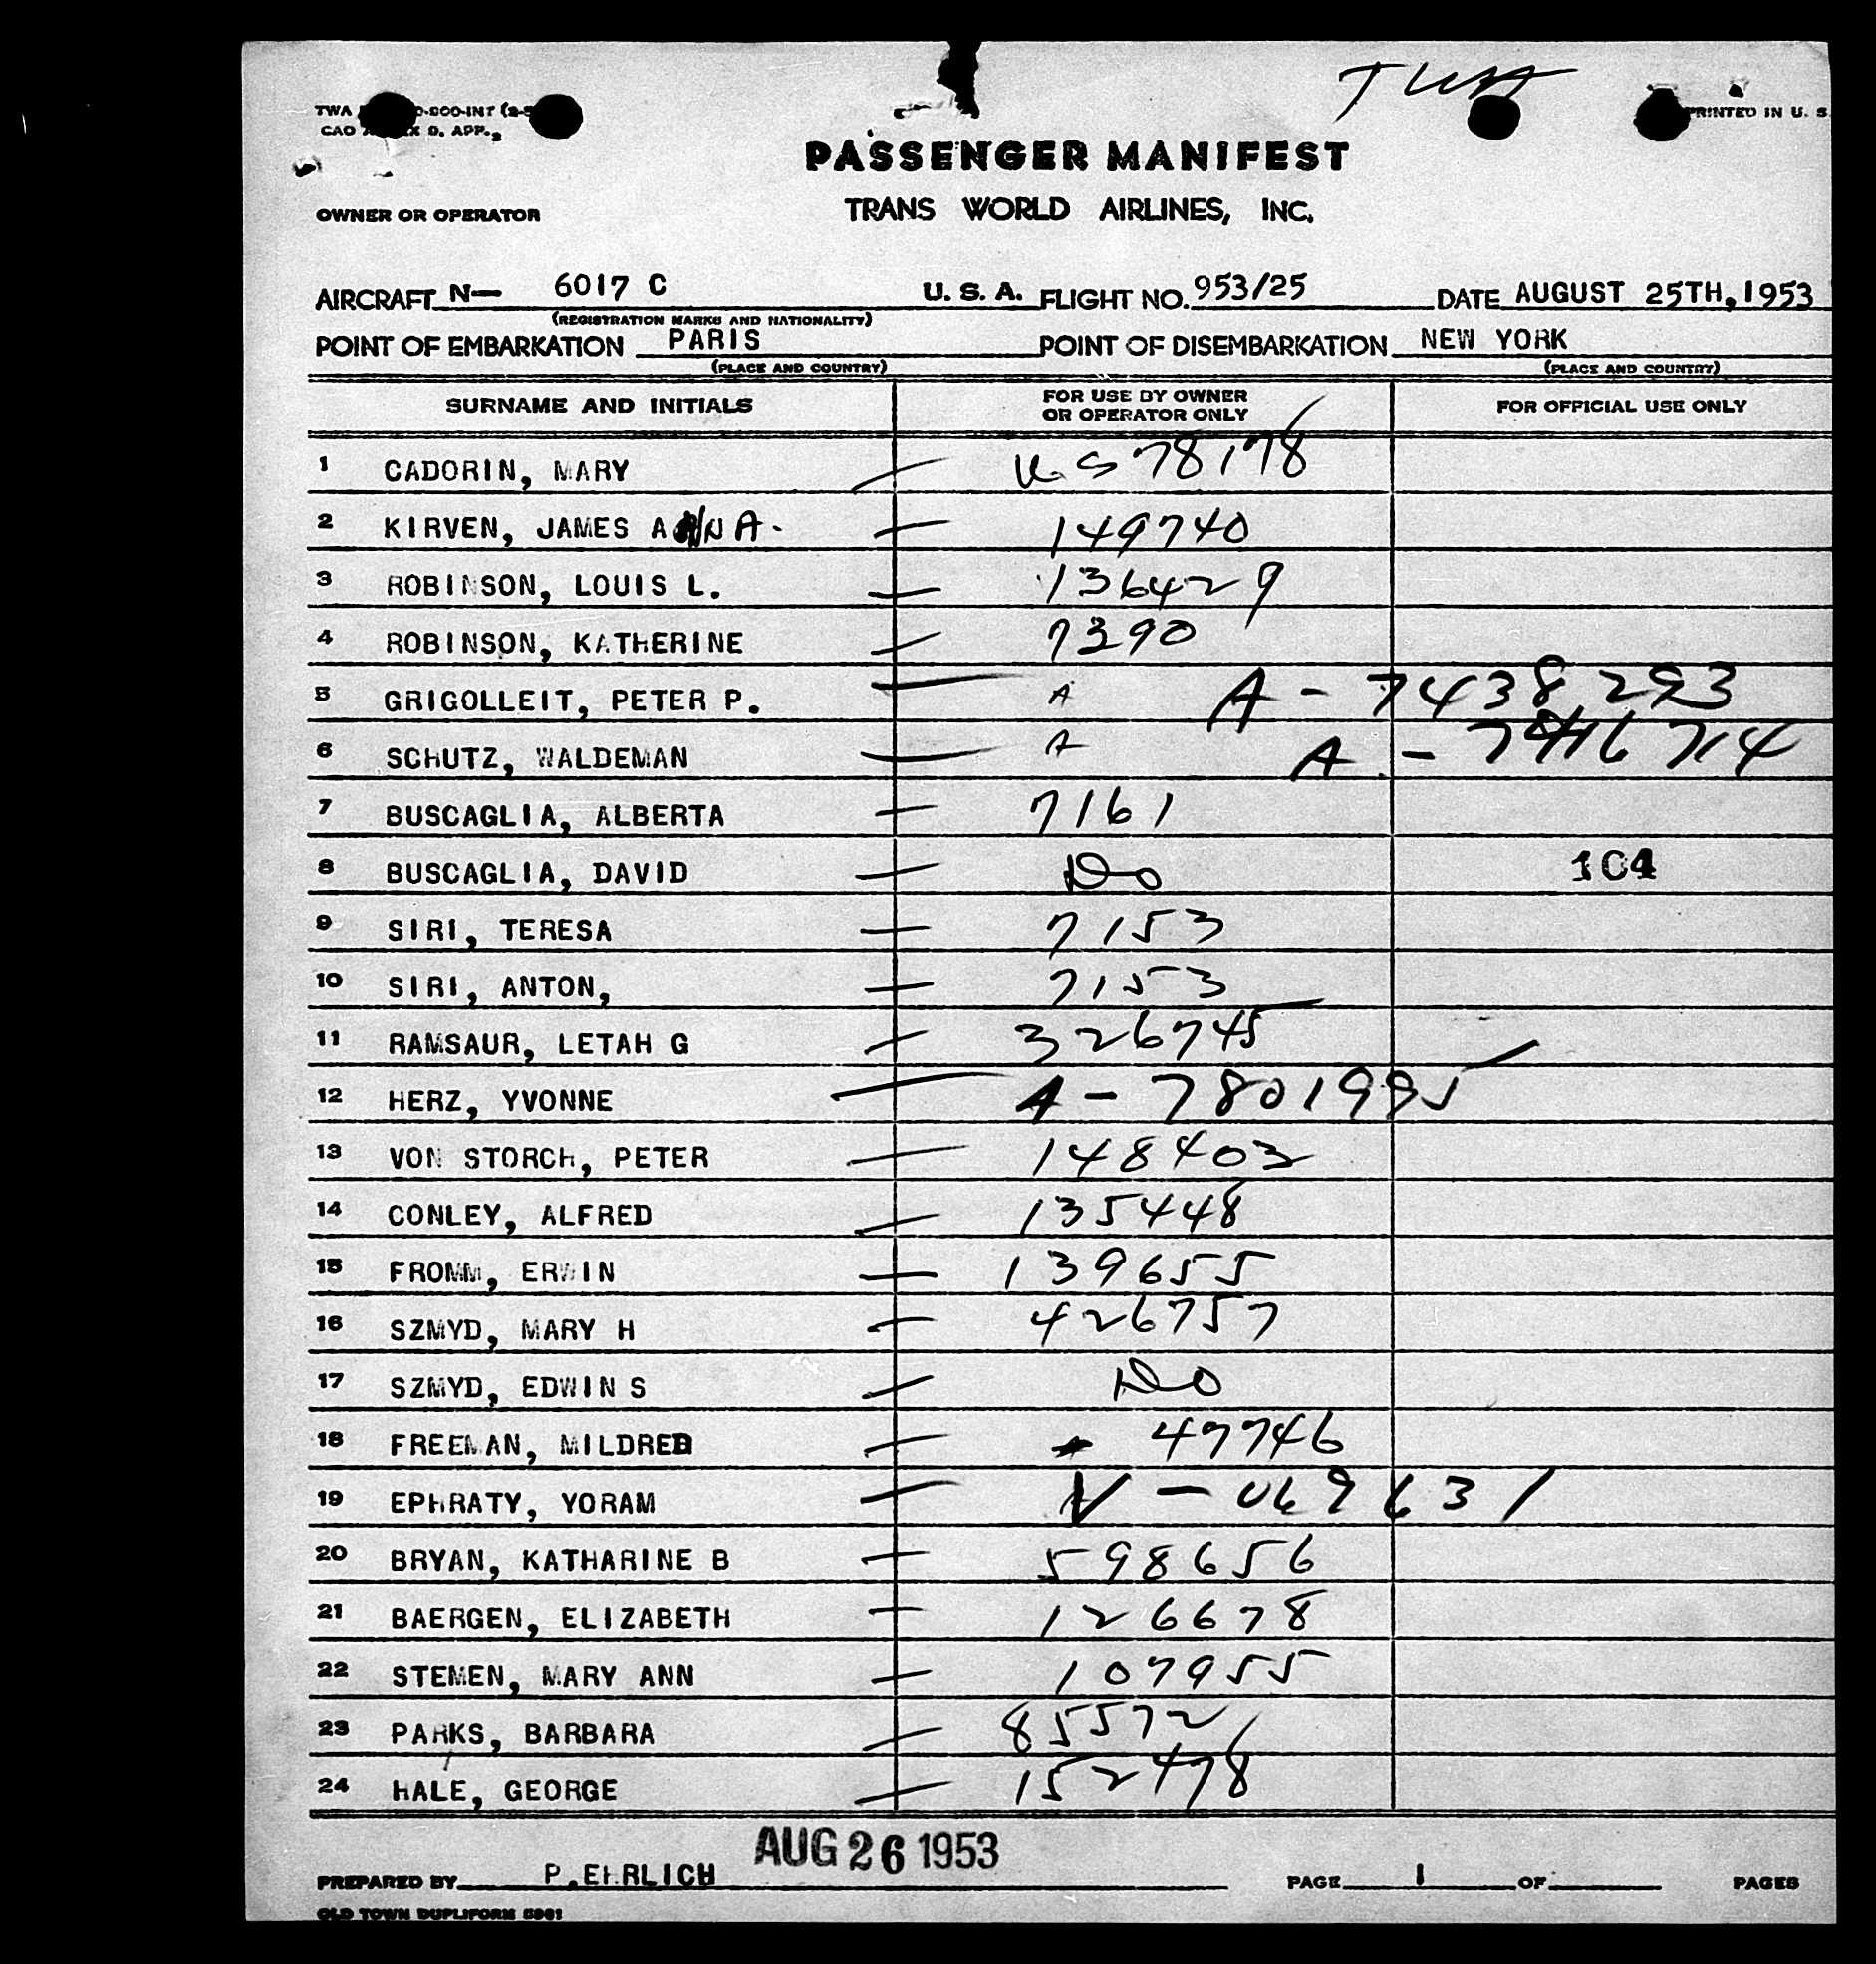 TWA
PRINTED IN U. S.
CAO D. APP.
PASSENGER MANIFEST
OWNER OR OPERATOR
TRANS WORLD AIRLINES, INC.
AIRCRAFT N— 6017 C U. S. A. FLIGHT NO. 953/25 DATE AUGUST 25TH, 1953
(REGISTRATION MARKS AND NATIONALITY)
POINT OF EMBARKATION PARIS POINT OF DISEMBARKATION NEW YORK
(PLACE AND COUNTRY) (PLACE AND COUNTRY)
SURNAME AND INITIALS FOR USE BY OWNER OR OPERATOR ONLY FOR OFFICIAL USE ONLY
1 CADORIN, MARY 78178
2 KIRVEN, JAMES A A. 149740
3 ROBINSON, LOUIS L. 136429
4 ROBINSON, KATHERINE 7390
5 GRIGOLLEIT, PETER P. A A - 7438293
6 SCHUTZ, WALDEMAN A A -
7 BUSCAGLIA, ALBERTA 7161
8 BUSCAGLIA, DAVID Do 104
9 SIRI, TERESA 7153
10 SIRI, ANTON, 7153
11 RAMSAUR, LETAH G 326745
12 HERZ, YVONNE A - 7801995
13 VON STORCH, PETER 148403
14 CONLEY, ALFRED 135448
15 FROMM, ERWIN 139655
16 SZMYD, MARY H 426757
17 SZMYD, EDWIN S Do
18 FREEMAN, MILDRED 47746
19 EPHRATY, YORAM V - 069631
20 BRYAN, KATHARINE B 598656
21 BAERGEN, ELIZABETH 126678
22 STEMEN, MARY ANN 107955
23 PARKS, BARBARA 85572
24 HALE, GEORGE 152478
AUG 26 1953
PREPARED BY P. EHRLICH PAGE 1 OF PAGES
OLD TOWN DUPLIFORM